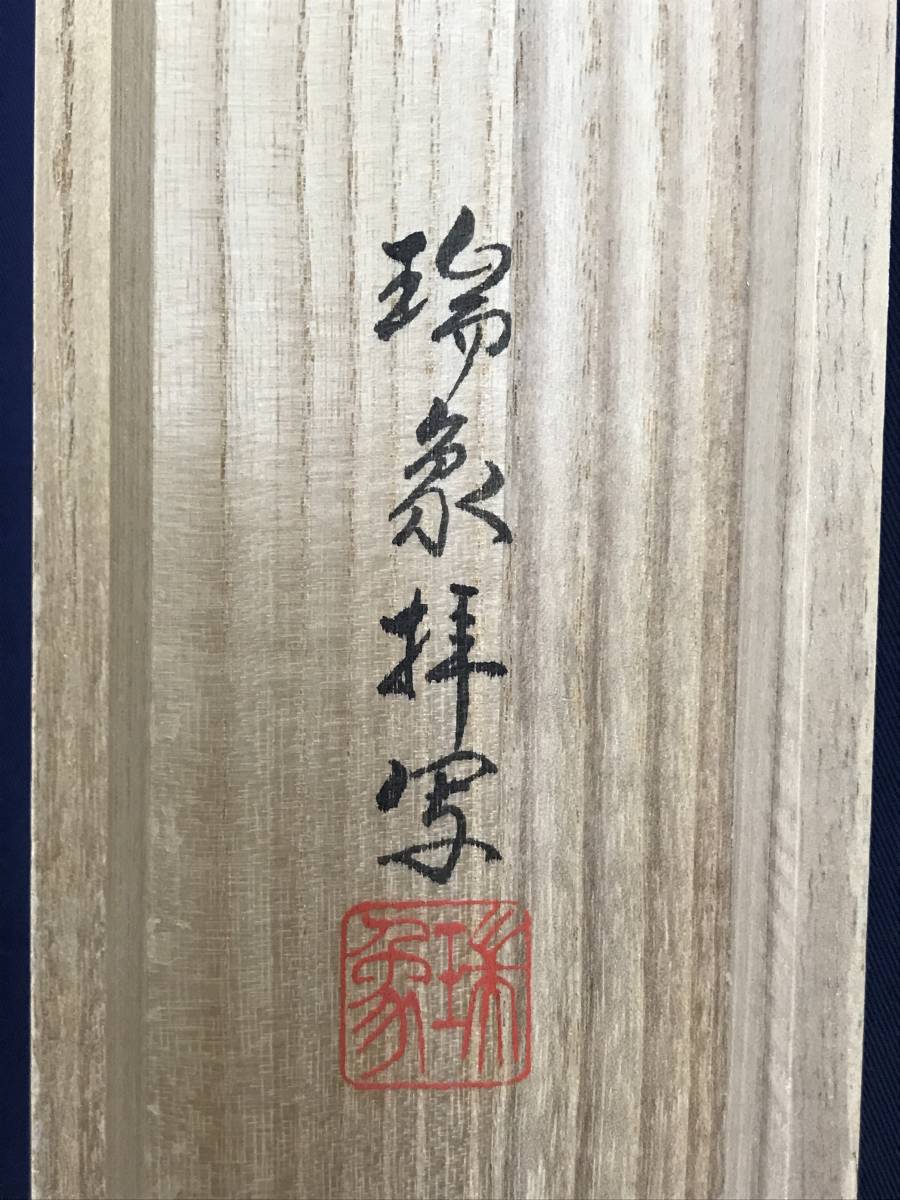 瑞象拝写
瑞象